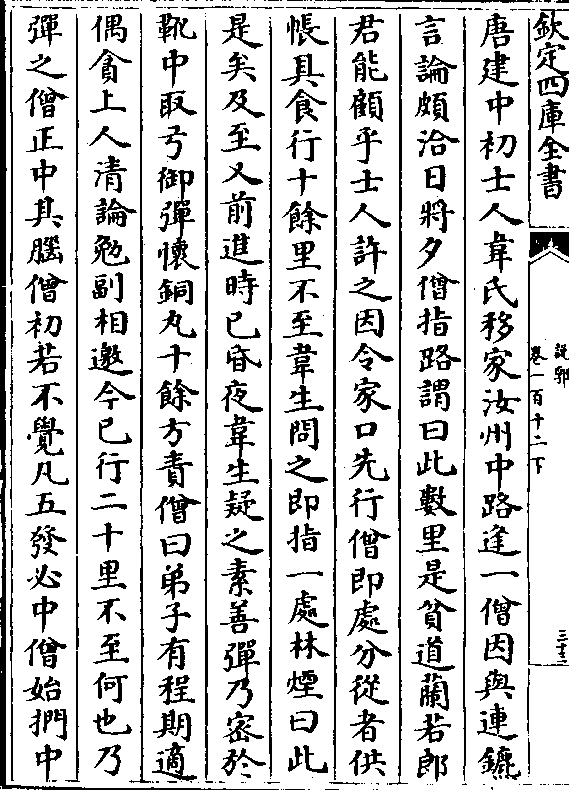 欽定四庫全書
說郛
卷一百十二下
三十三
唐建中初士人韋氏移家汝州中路逢一僧因與連鑣
言論頗洽日將夕僧指路謂曰此數里是貧道蘭若郎
君能顧乎士人許之因令家口先行僧即處分從者供
帳具食行十餘里不至韋生問之即指一處林煙曰此
是矣及至又前進時已昏夜韋生疑之素善彈乃密於
靴中取弓御彈懷銅丸十餘方責僧曰弟子有程期適
偶貪上人清論勉副相邀今已行二十里不至何也乃
彈之僧正中其腦僧初若不覺凡五發必中僧始捫中